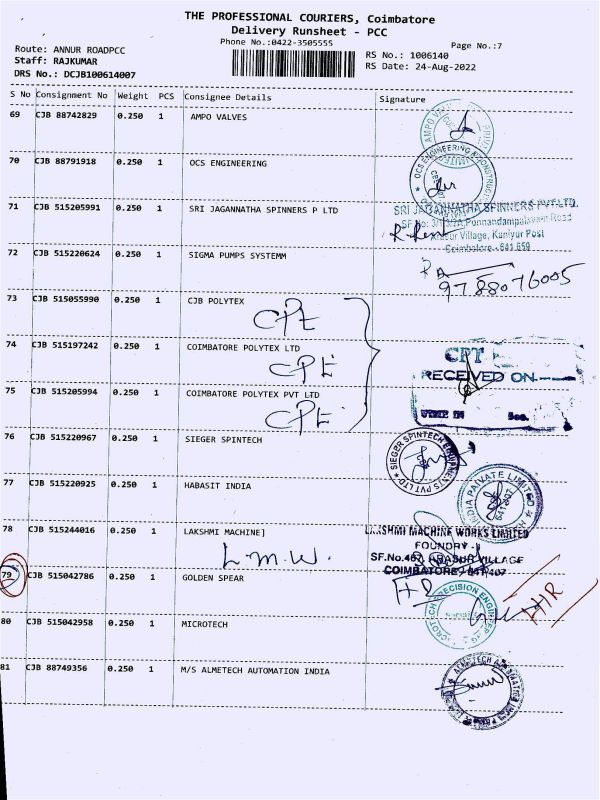 THE PROFESSIONAL COURIERS, Coimbatore
Delivery Runsheet - PCC
Phone No.:0422-3505555
Page No.:7
Route: ANNUR ROADPCC
RS No.: 1006140
Staff: RAJKUMAR
RS Date: 24-Aug-2022
DRS No.: DCJB100614007
S No Consignment No Weight PCS Consignee Details Signature
69 CJB 88742829 0.250 1 AMPO VALVES
70 CJB 88791918 0.250 1 OCS ENGINEERING
OCS ENGINEERING &
71 CJB 515205991 0.250 1 SRI JAGANNATHA SPINNERS P LTD
SRI JAGANNATHA SPINNERS PVT.LTD.
Ponnandampalayam Road
Arasur Village, Kaniyur Post
Coimbatore - 641 659
72 CJB 515220624 0.250 1 SIGMA PUMPS SYSTEMM
9788076005
73 CJB 515055990 0.250 1 CJB POLYTEX
CPL
74 CJB 515197242 0.250 1 COIMBATORE POLYTEX LTD
CPE
RECEIVED ON
75 CJB 515205994 0.250 1 COIMBATORE POLYTEX PVT LTD
CPE
76 CJB 515220967 0.250 1 SIEGER SPINTECH
SIEGER SPINTECH EQUIPMENTS PVT LTD
77 CJB 515220925 0.250 1 HABASIT INDIA
INDIA PRIVATE LIMITED
78 CJB 515244016 0.250 1 LAKSHMI MACHINE]
L.M.W.
LAKSHMI MACHINE WORKS LIMITED
FOUNDRY -
SF.No.467, ARASUR VILLAGE
COIMBATORE - 641 407
79 CJB 515042786 0.250 1 GOLDEN SPEAR
HR
80 CJB 515042958 0.250 1 MICROTECH
81 CJB 88749356 0.250 1 M/S ALMETECH AUTOMATION INDIA